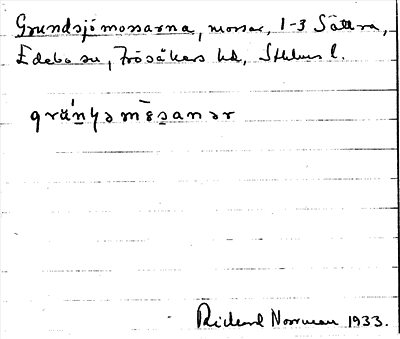 Grundsjömossarna, mossar, 1-3 Sättra,
Edebo sn, Frösåkers hd, Sthlms l.
Rickard Norrman 1933.